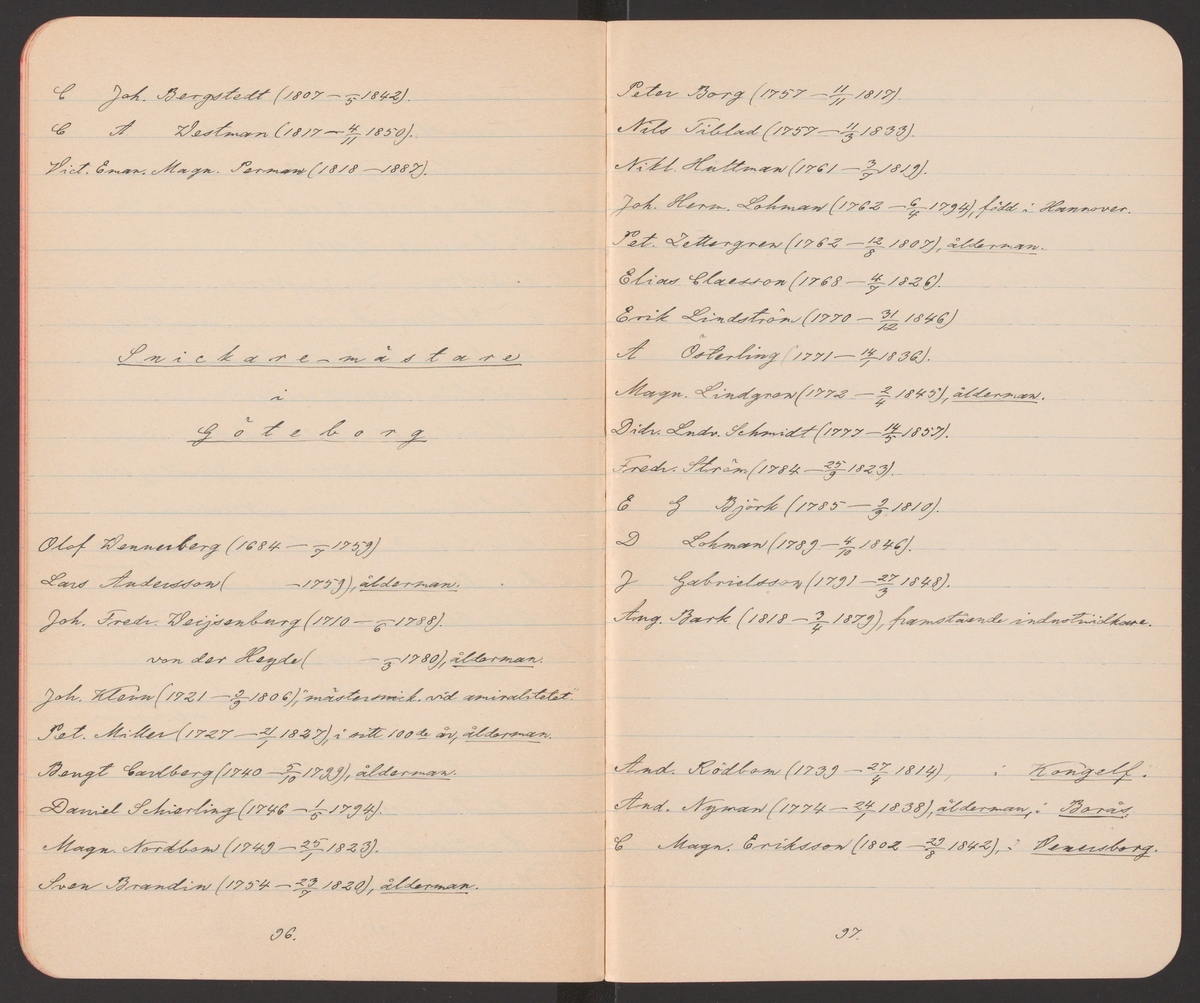 C Joh. Bergstedt (1807 — –/5 1842).
C A Westman (1817 — 4/11 1850).
Vict. Eman. Magn. Perman (1818 — 1887).
Snickare-mästare
i
Göteborg
Olof Wennerberg (1684 — –/7 1759)
Lars Andersson ( — 1759), ålderman.
Joh. Fredr. Weijsenburg (1710 — –/6 1788).
von der Heyde ( — –/3 1780), ålderman.
Joh. Klein (1721 — 2/9 1806), "mästersnick. vid amiralitetet".
Pet. Miller (1727 — 21/1 1827), i sitt 100de år, ålderman.
Bengt Carlberg (1740 — 5/10 1799), ålderman.
Daniel Schierling (1746 — 1/5 1794).
Magn. Nordbom (1749 — 25/1 1823).
Sven Brandin (1754 — 23/7 1820), ålderman.
96.
Peter Borg (1757 — 11/11 1817).
Nils Tiblad (1757 — 11/3 1833).
Nikl. Hultman (1761 — 3/7 1819).
Joh. Herm. Lohman (1762 — 6/4 1794), född i Hannover.
Pet. Zettergren (1762 — 12/8 1807), ålderman.
Elias Claesson (1768 — 4/7 1826).
Erik Lindström (1770 — 31/12 1846)
A Österling (1771 — 14/1 1836).
Magn. Lindgren (1772 — 2/4 1845), ålderman.
Didr. Ludv. Schmidt (1777 — 14/5 1857).
Fredr. Ström (1784 — 25/9 1823).
E G Björk (1785 — 2/9 1810).
D Lohman (1789 — 4/10 1846).
J Gabrielsson (1791 — 27/3 1848).
Aug. Bark (1818 — 3/4 1879), framstående industriidkare.
And. Rödbom (1739 — 27/4 1814), i Kongelf.
And. Nyman (1774 — 24/1 1838), ålderman, i Borås.
C Magn. Eriksson (1802 — 29/8 1842), i Venersborg.
97.